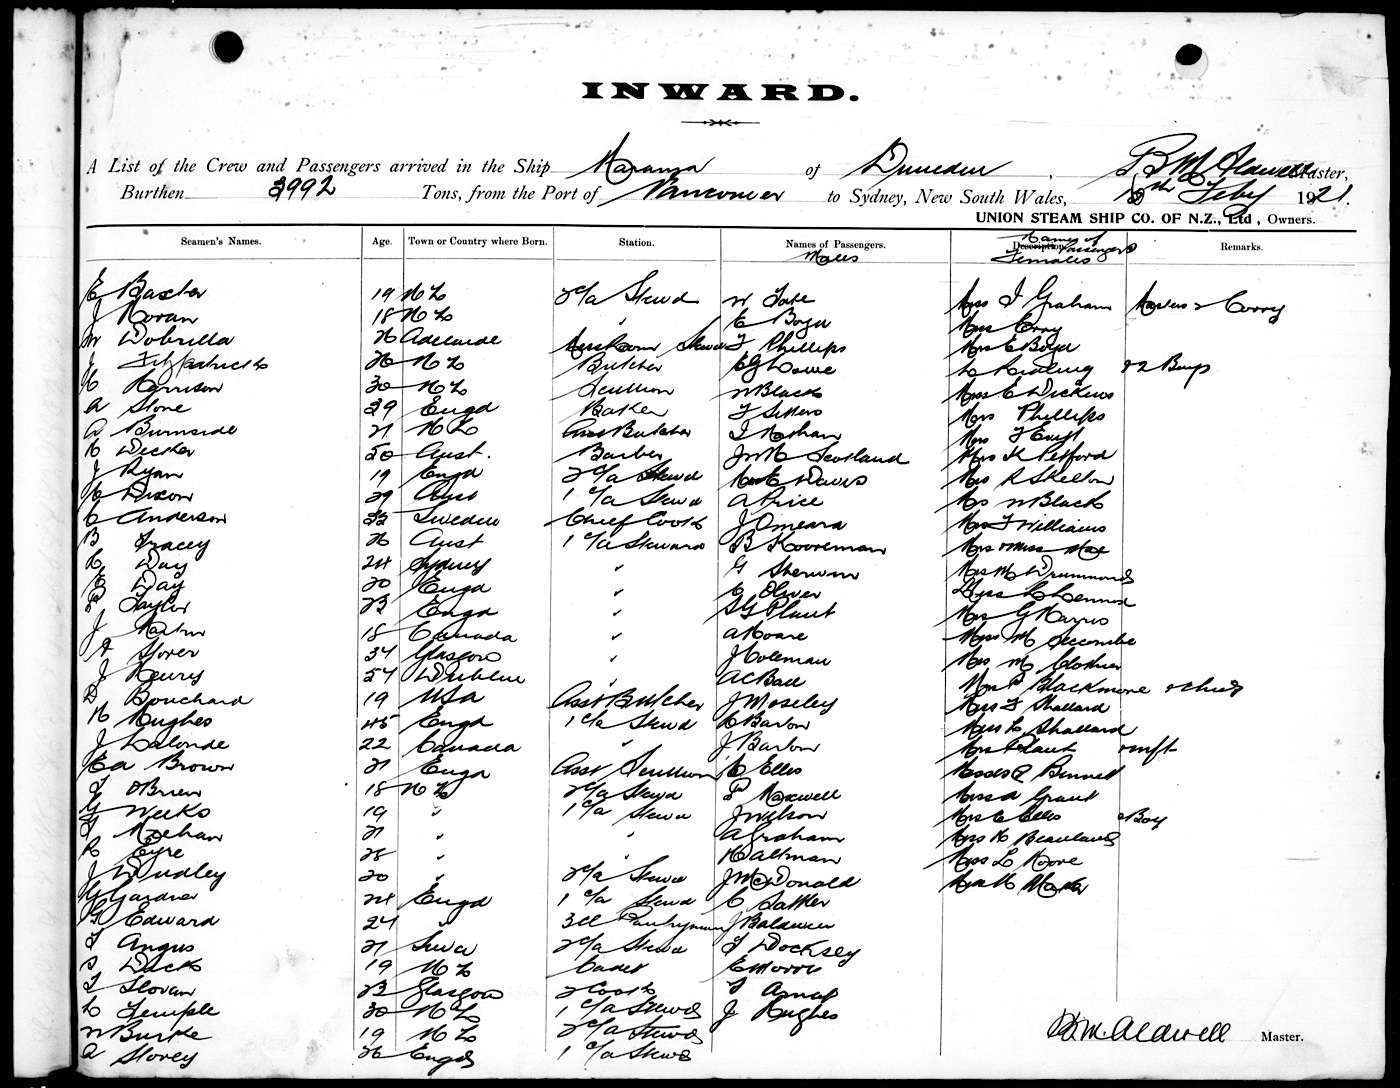 INWARD.
A List of the Crew and Passengers arrived in the Ship Marama of Dunedin, B M Aldwell Master,
Burthen 3992 Tons, from the Port of Vancouver to Sydney, New South Wales, Feby 1921.
UNION STEAM SHIP CO. OF N.Z., Ltd, Owners.
Seamen's Names. Age. Town or Country where Born. Station. Names of Passengers. Males Description Names of Passengers Females Remarks.
E Baxter 19 N Z 2 c/a Stewd W Tate Miss I Graham
J Moran 18 N Z " E Boyd
W Dobrilla 26 Adelaide Stewd F Phillips Mrs E Boyd
J Fitzpatrick 26 N Z Butcher E G Lowe & 2 Boys
H Harrison 30 N Z Scullion W Black Miss E Dickens
A Stone 29 Engd Baker F Sitters Mrs Phillips
A Burnside 21 N Z Asst Butcher I Nathan Mrs
H Decker 20 Aust. Barber J M Scotland Mrs K Petford
J Ryan 19 Engd 2 c/a Stewd E Davis Mrs R Skellon
H Dixon 29 Aust 1 c/a Stewd A Price Mrs W Black
C Anderson 32 Sweden Chief Cook J Omeara Mrs F Williams
B Tracey 26 Aust 1 c/a Steward B Kooreman Mrs & Miss
C Day 24 Sydney " G Sherwin Mrs M Drummond
E Day 20 Engd " C Oliver Miss C Lennox
P Taylor 23 Engd " S G Plant Mrs G Harris
J Martin 18 Canada " A Moore Miss M Seccombe
Storer 34 Glasgow " J Coleman Mrs M Clothier
J Henry 54 Dublin A C Ball Mrs P Blackmore & child
D Bouchard 19 USA Asst Butcher J Moseley Miss F Shallard
H Hughes 45 Engd 1 c/a Stewd C Barton Miss L Shallard
J Lalonde 22 Canada " J Barton Mrs Plant & inft
Ed Brown 21 Engd Asst Scullion C Ellis Bennett
T OBrien 18 N Z 2 c/a Stewd P Maxwell Miss A Grant
G Weeks 19 " 1 c/a Stewd J Wilson Mrs C Ellis & Boy
T Meehan 21 " " A Graham Mrs H Beauland
R Eyre 28 " " H Altman Miss L Moore
J Dudley 20 " 2 c/a Stewd J McDonald
G Gardner 24 Engd 1 c/a Stewd C Sattler
G Edward 24 " 3 cl Pantryman J Baldwin
T Angus 21 Suva 2 c/a Stewd F Docksey
S Dack 19 N Z Cadet E Morris
T Sloran 23 Glasgow 2 Cook T
L Temple 30 N Z 1 c/a Stewd J Hughes
W Burke 19 N Z 2 c/a Stewd
A Storey 26 Engd 1 c/a Stewd
B M Aldwell Master.